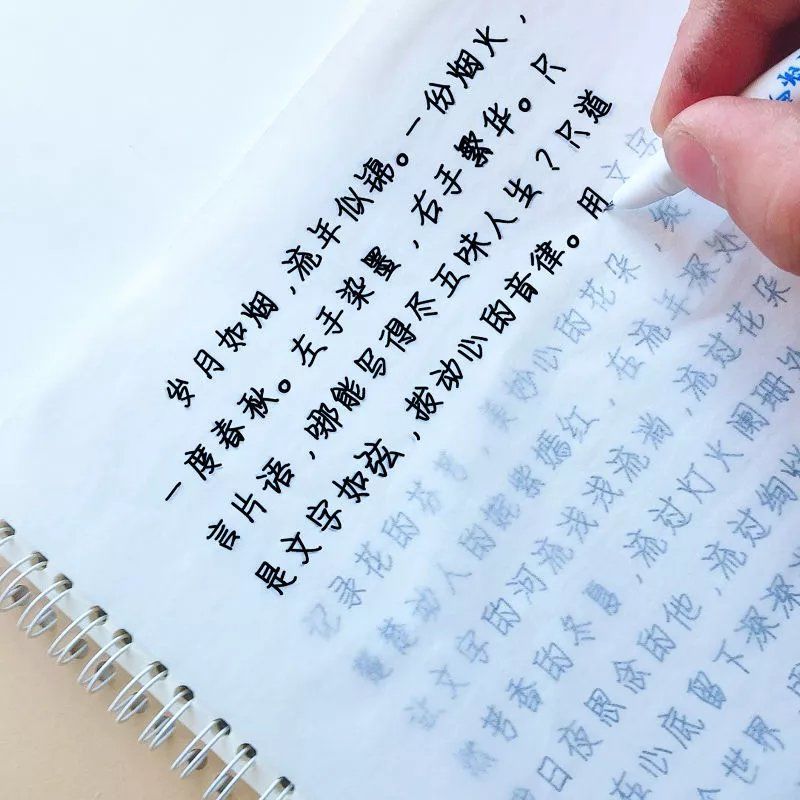 岁月如烟,流年似锦。一份烟火,
一度春秋。左手染墨,右手繁华。只
言片语,哪能写得尽五味人生?只道
是文字如弦,拨动心的音律。用文字
记录花的芬芳,美妙心的花朵,
动人的姹紫嫣红,在流年深处
文字的河流浅浅流淌,流过花朵
苦香的冬夏,流过灯火阑珊
日夜思念的他,流过绚
在心底留下深深
世界